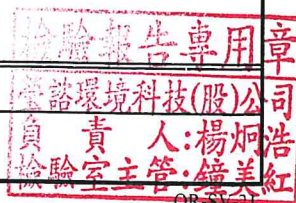 檢驗報告專用章
臺諮環境科技(股)公司
負責人:楊炯浩
檢驗室主管:鐘美紅
QR-SV-21